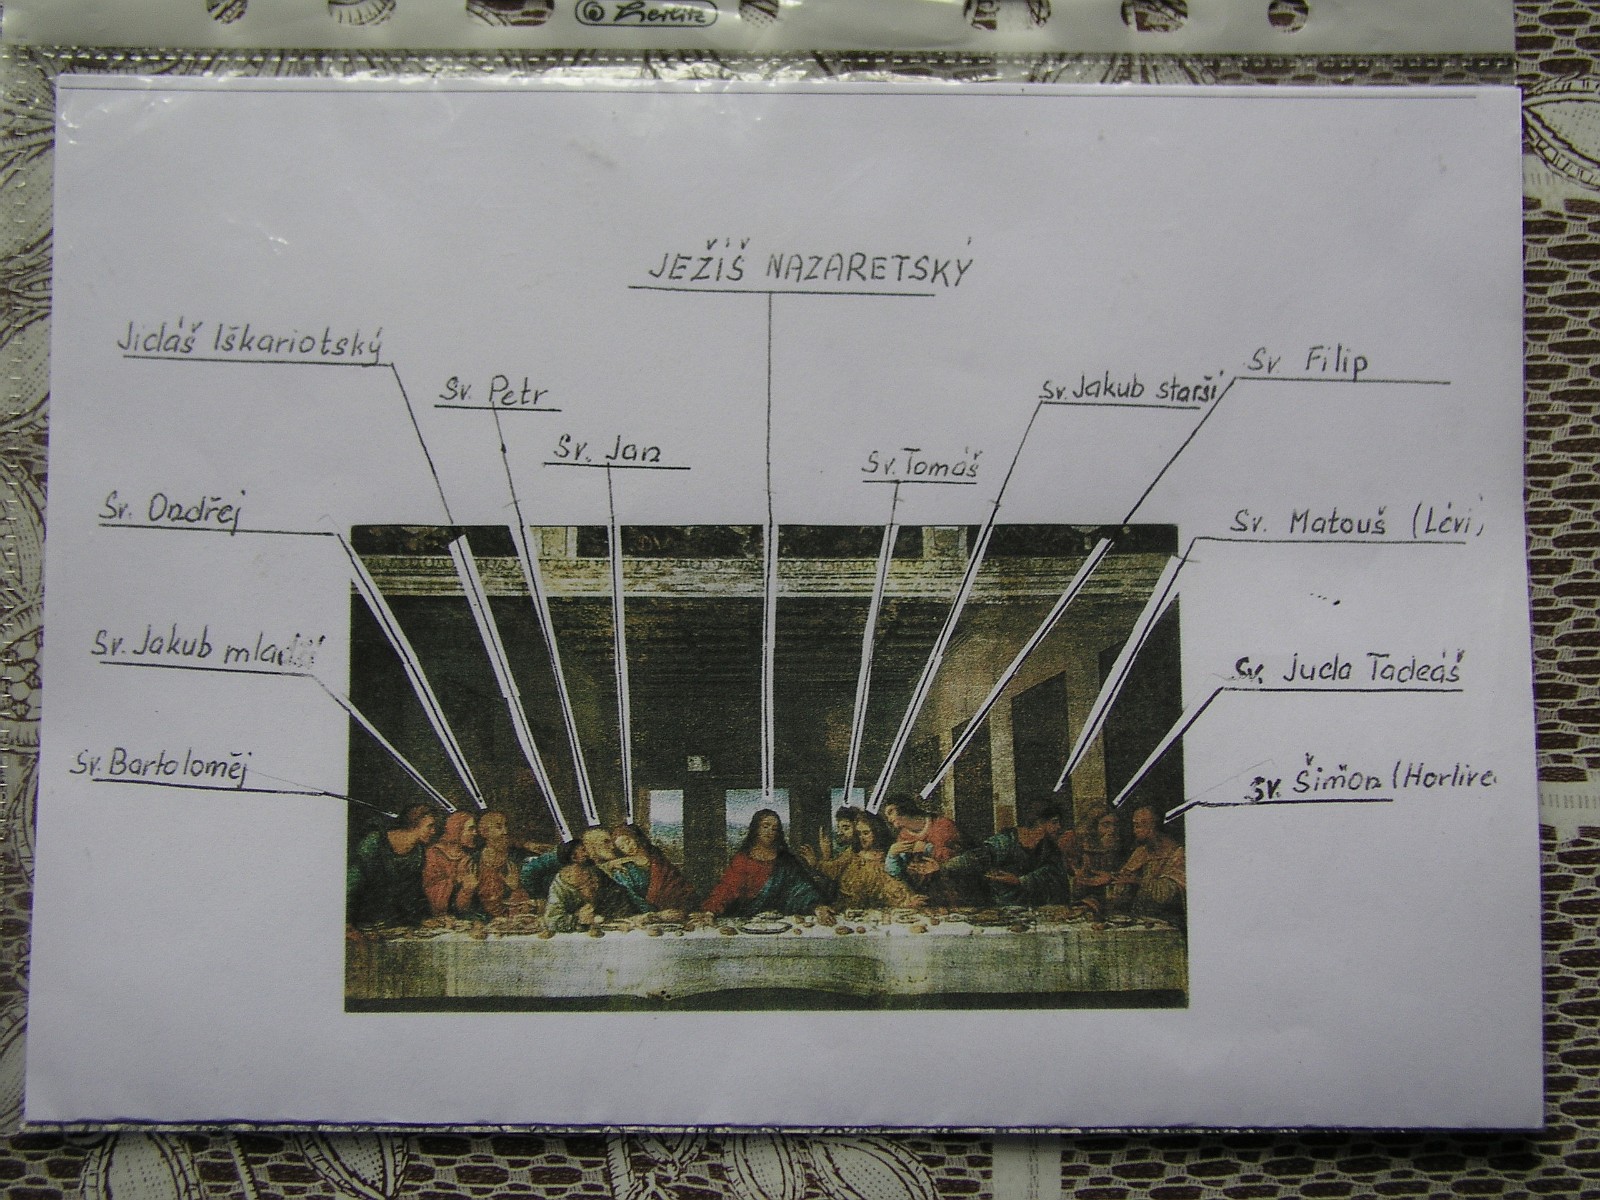 Herlitz
JEŽÍŠ NAZARETSKÝ
Jidáš Iškariotský
Sv. Petr
Sv. Jan
Sv. Tomáš
Sv. Jakub starší
Sv. Filip
Sv. Ondřej
Sv. Matouš (Lévi)
Sv. Jakub mladší
Sv. Juda Tadeáš
Sv. Bartoloměj
Sv. Šimon (Horlive